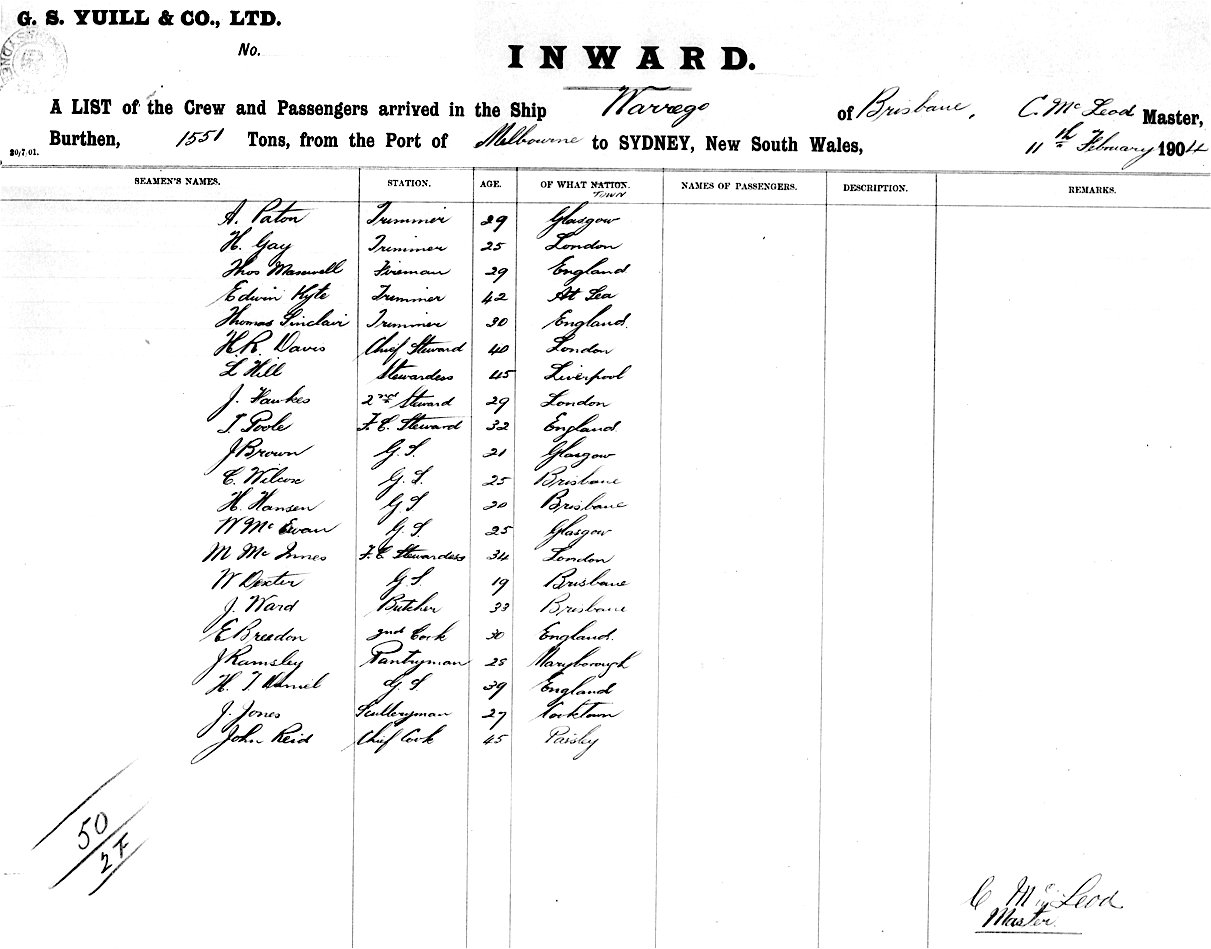 G. S. YUILL & CO., LTD.
No.
INWARD.
A LIST of the Crew and Passengers arrived in the Ship Warrego of Brisbane, C. Mc Leod Master,
Burthen, 1551 Tons, from the Port of Melbourne to SYDNEY, New South Wales, 11th February 1904
20/7/01.
SEAMEN'S NAMES. STATION. AGE. OF WHAT NATION. NAMES OF PASSENGERS. DESCRIPTION. REMARKS.
TOWN
A. Paton Trimmer 29 Glasgow
H. Gay Trimmer 25 London
Thos Maxwell Fireman 29 England
Edwin Kyte Trimmer 42 At Sea
Thomas Sinclair Trimmer 30 England.
H.R. Davis Chief Steward 40 London
L Hill Stewardess 45 Liverpool
J. Hawkes 2nd Steward 29 London
T Poole F.C. Steward 32 England.
J Brown G.S. 21 Glasgow
C. Wilcox G.S. 25 Brisbane
H. Hansen G.S. 20 Brisbane
W Mc Ewan G.S. 25 Glasgow
M Mc Innes F.C Stewardess 34 London
W Dexter G.S. 19 Brisbane
J. Ward Butcher 33 Brisbane
E Breedon 2nd Cook 30 England.
J Ramsley Pantryman 25 Maryborough
H. T. Daniel G.S. 39 England
J. Jones Sculleryman 27 Cooktown
John Reid Chief Cook 45 Paisley
50
2 F
C Mc Leod
Master.